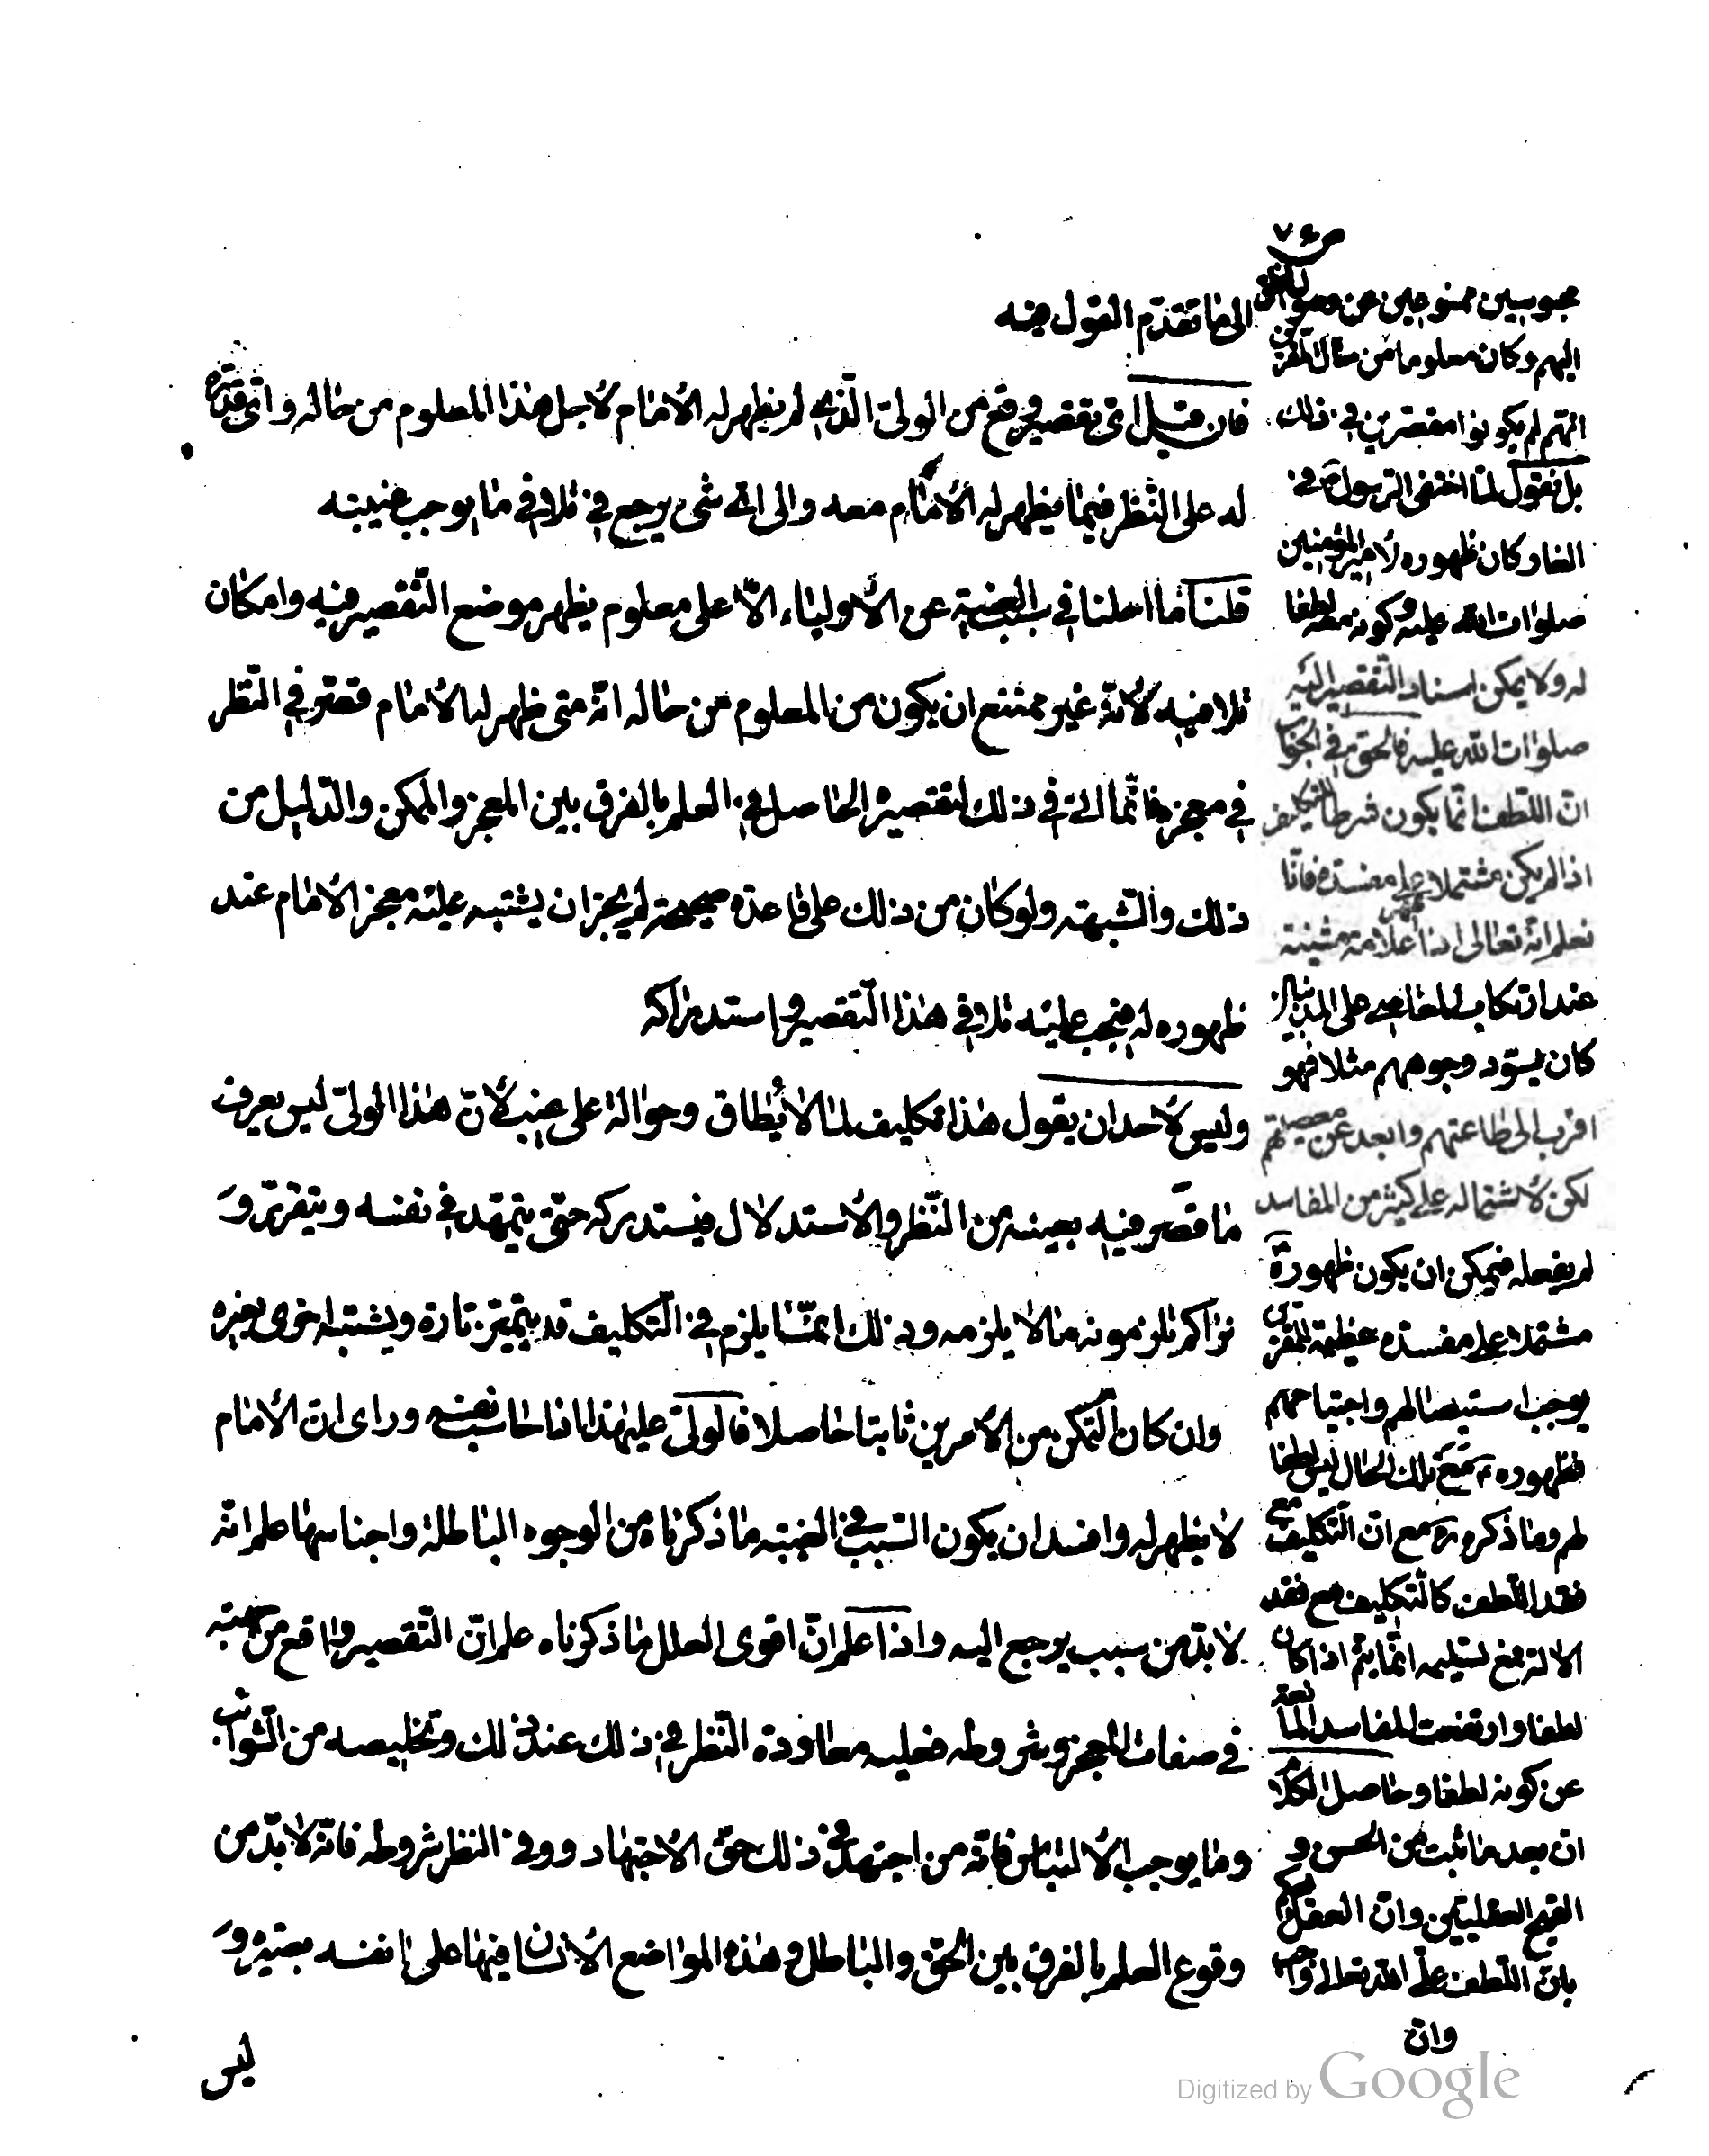 ص٧٤
الى ما تقدم القول فيه
فان قيل اى تقصير وقع من الولى الذى لم يظهر له الامام لاجل هذا المعلوم من حاله واى قدرة
له على النظر فيما يظهر له الامام معه والى اى شىء يرجع فى تلافى ما يوجب غيبته
قلنا ما احلنا فى سبب الغيبة عن الأولياء الا على معلوم يظهر موضع التقصير فيه وامكان
تلافيه لأنه غير ممتنع ان يكون من المعلوم من حاله انه متى ظهر له الامام قصر فى النظر
فى معجزه فانما اتى فى ذلك لتقصيره الحاصل فى العلم بالفرق بين المعجز والممكن والدليل من
ذلك والشبهة ولو كان من ذلك على قاعدة صحيحة لم يجز ان يشتبه عليه معجز الامام عند
ظهوره له فيجب عليه تلافى هذا التقصير واستدراكه
وليس لأحد ان يقول هذا تكليف لما لا يطاق وحوالة على غيب لأن هذا الولى ليس يعرف
ما قصر فيه بعينه من النظر والأستدلال فيستدركه حتى يتمهد فى نفسه ويتقرر و
نراكم تلزمونه ما لا يلزمه وذلك انما يلزم فى التكليف قد يتميز تارة ويشتبه اخرى بغيره
وان كان التمكن من الأمرين ثابتا حاصلا فالولى على هذا اذا حاسب نفسه وراى ان الأمام
لا يظهر له وافسد ان يكون السبب فى الغيبة ما ذكرناه من الوجوه الباطلة واجناسها علم انه
لا بد من سبب يرجع اليه واذا علم ان اقوى العلل ما ذكرناه علم ان التقصير واقع من جهته
فى صفات المعجز وشروطه فعليه معاودة النظر فى ذلك عند ذلك وتخليصه من الشوائب
وما يوجب الألتباس فانه من اجتهد فى ذلك حق الاجتهاد ووفى النظر شروطه فانه لا بد من
وقوع العلم بالفرق بين الحق والباطل وهذه المواضع الأنسان فيها على نفسه بصيرة و
ليس
محبوسين ممنوعين عن وصول
اليهم وكان معلوما من حال المقربين
انهم لم يكونوا مقصرين فى ذلك
بل نقول لما اختفى الرسول ص فى
الغار وكان ظهوره لأمير المؤمنين
صلوات الله عليه وكونه معه لطفا
له ولا يمكن اسناد التقصير اليه
صلوات الله عليه فالحق فى الجواب
ان اللطف انما يكون شرطا للتكليف
اذا لم يكن مشتملا على مفسدة فانا
نعلم انه تعالى اذا اظهر علامة مشينة
عند ارتكاب المعاصى على المذنبين
كان يسود وجوههم مثلا فهو
اقرب الى طاعتهم وابعد عن معصيتهم
لكن لاشتماله على كثير من المفاسد
لم يفعله فيمكن ان يكون ظهوره ع
مشتملا على مفسدة عظيمة للمقربين
يوجب استيصالهم واجتياحهم
فظهوره ع مع تلك الحال ليس لطفا
لهم وما ذكره ره مع ان التكليف مع
فقد اللطف كالتكليف مع فقد
الالة فمع تسليمه انما يتم اذا كان
لطفا وارتفعت المفاسد المانعة
عن كونه لطفا وحاصل الكلام
ان بعد ما ثبت من الحسن و
القبح العقليين وان العقل يحكم
بان اللطف على الله تعالى واجب
وان
Digitized by Google